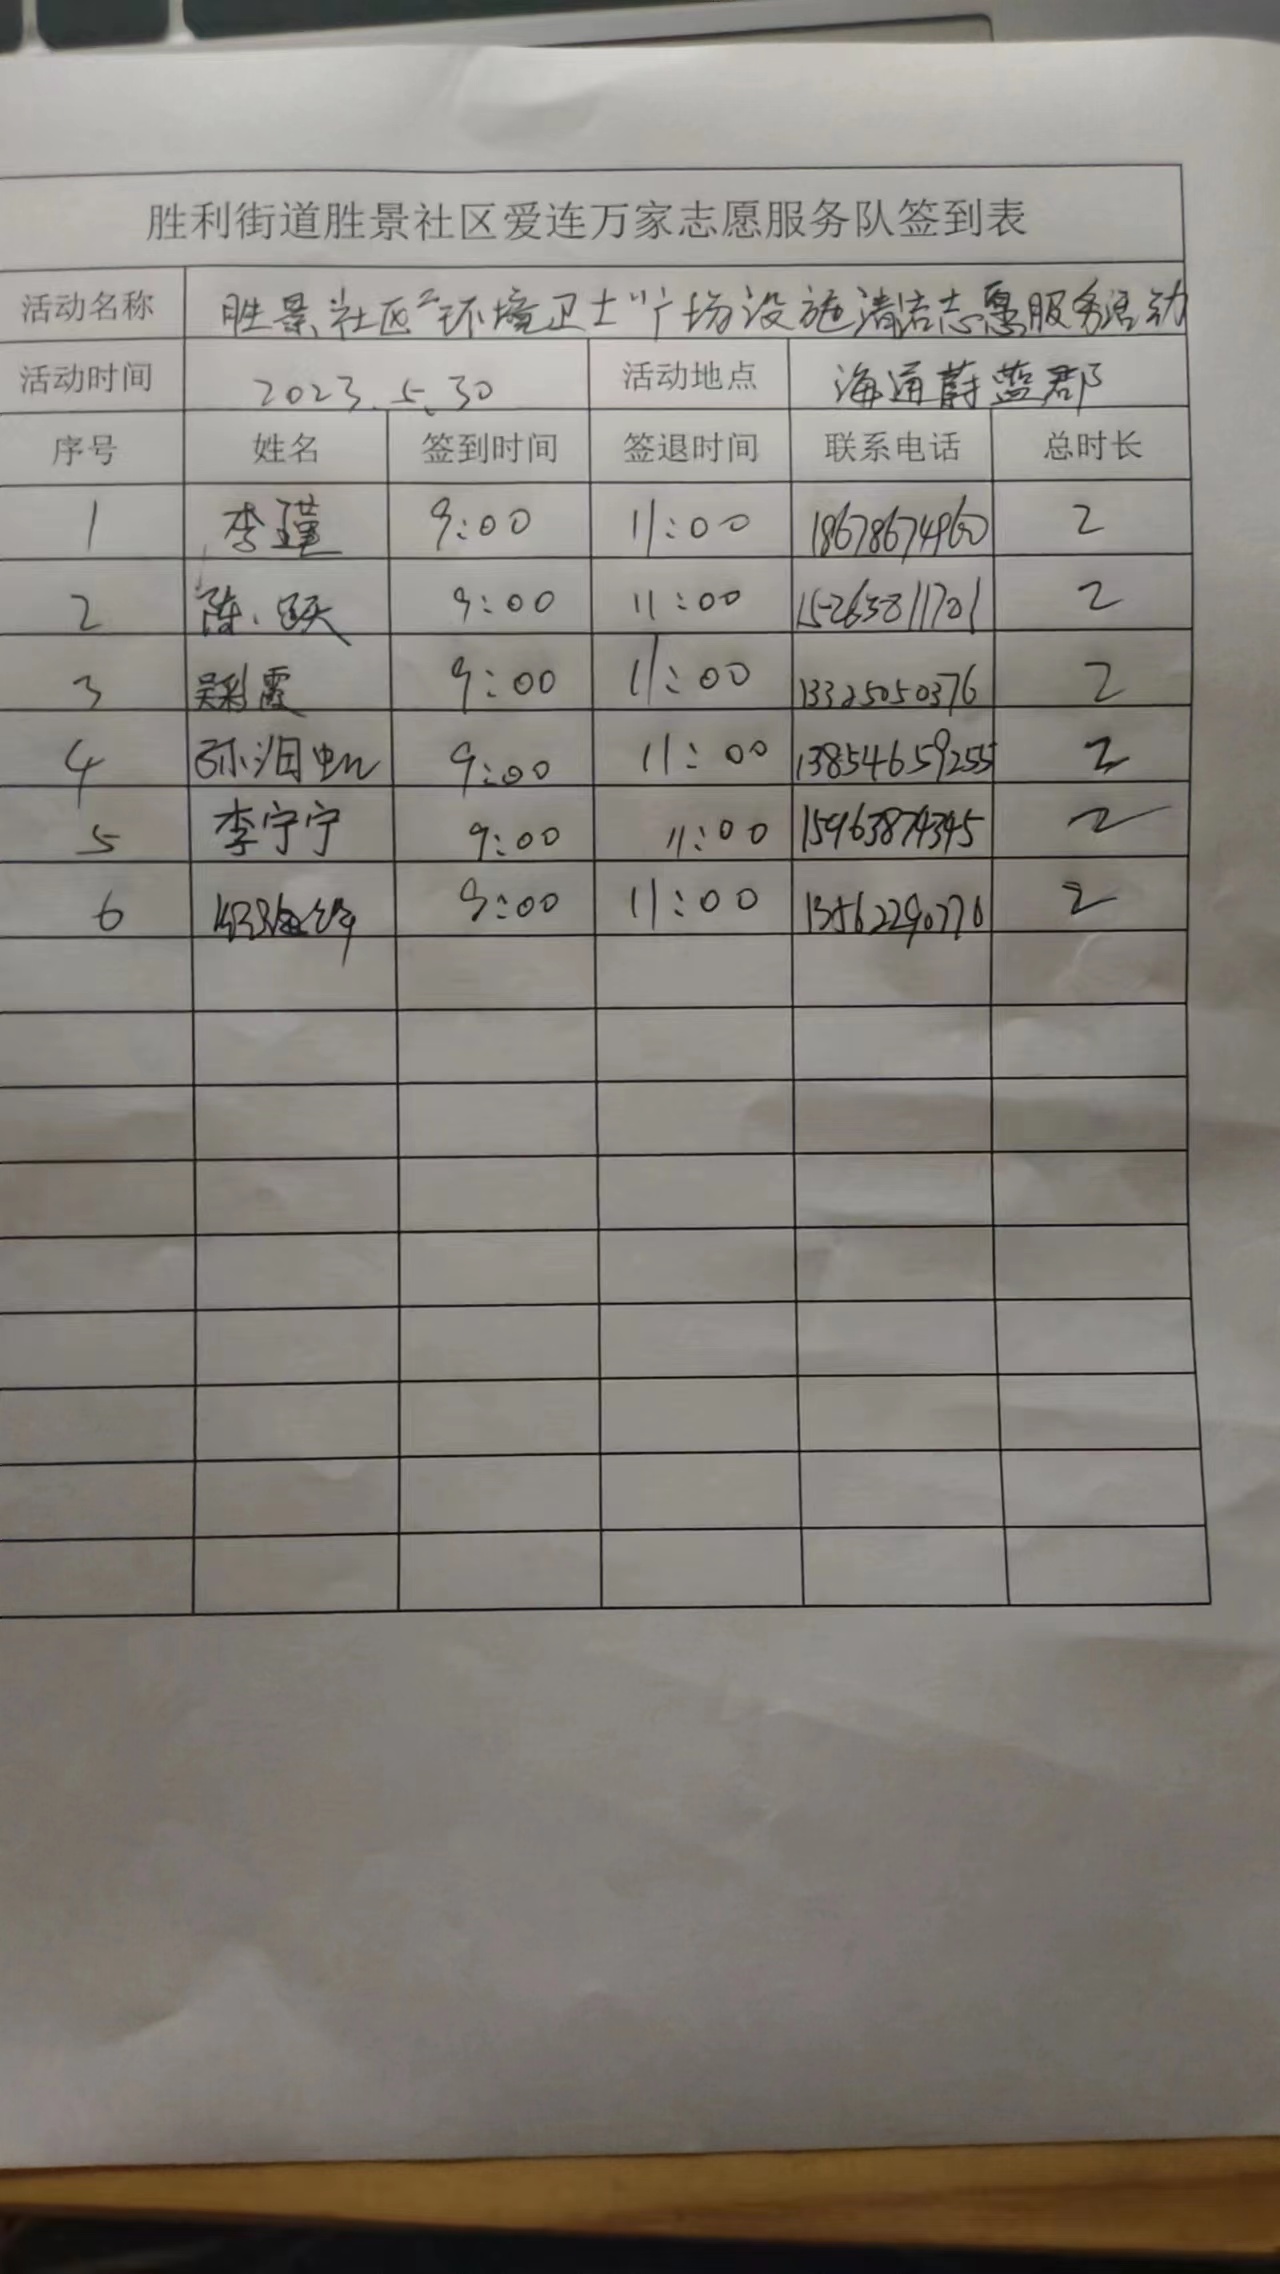 胜利街道胜景社区爱连万家志愿服务队签到表
活动名称 胜景社区"环境卫士"广场设施清洁志愿服务活动
活动时间 2023.5.30 活动地点 海通蔚蓝郡
序号 姓名 签到时间 签退时间 联系电话 总时长
1 李瑾 9:00 11:00 18678674960 2
2 陈跃 9:00 11:00 15263811701 2
3 吴彩霞 9:00 11:00 13325050376 2
4 9:00 11:00 13854659255 2
5 李宁宁 9:00 11:00 15963874345 2
6 9:00 11:00 13562290770 2